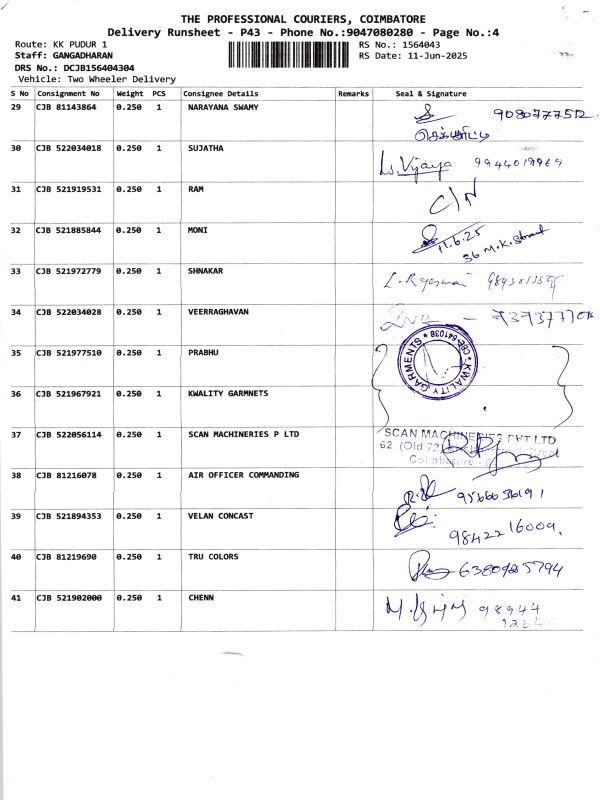 THE PROFESSIONAL COURIERS, COIMBATORE
Delivery Runsheet - P43 - Phone No.:9047080280 - Page No.:4
Route: KK PUDUR 1
RS No.: 1564043
Staff: GANGADHARAN
RS Date: 11-Jun-2025
DRS No.: DCJB156404304
Vehicle: Two Wheeler Delivery
S No Consignment No Weight PCS Consignee Details Remarks Seal & Signature
29 CJB 81143864 0.250 1 NARAYANA SWAMY
30 CJB 522034018 0.250 1 SUJATHA Vijaya 9944019969
31 CJB 521919531 0.250 1 RAM C/N
32 CJB 521885844 0.250 1 MONI 11.6.25
36 M.K. Street
33 CJB 521972779 0.250 1 SHNAKAR
34 CJB 522034028 0.250 1 VEERRAGHAVAN
35 CJB 521977510 0.250 1 PRABHU KWALITY GARMENTS * CBE-641038 *
36 CJB 521967921 0.250 1 KWALITY GARMNETS
37 CJB 522056114 0.250 1 SCAN MACHINERIES P LTD SCAN MACHINERIES PVT LTD
62 (Old 72)
Coimbatore
38 CJB 81216078 0.250 1 AIR OFFICER COMMANDING 9566636191
39 CJB 521894353 0.250 1 VELAN CONCAST 9842216009.
40 CJB 81219690 0.250 1 TRU COLORS
41 CJB 521902000 0.250 1 CHENN 98944